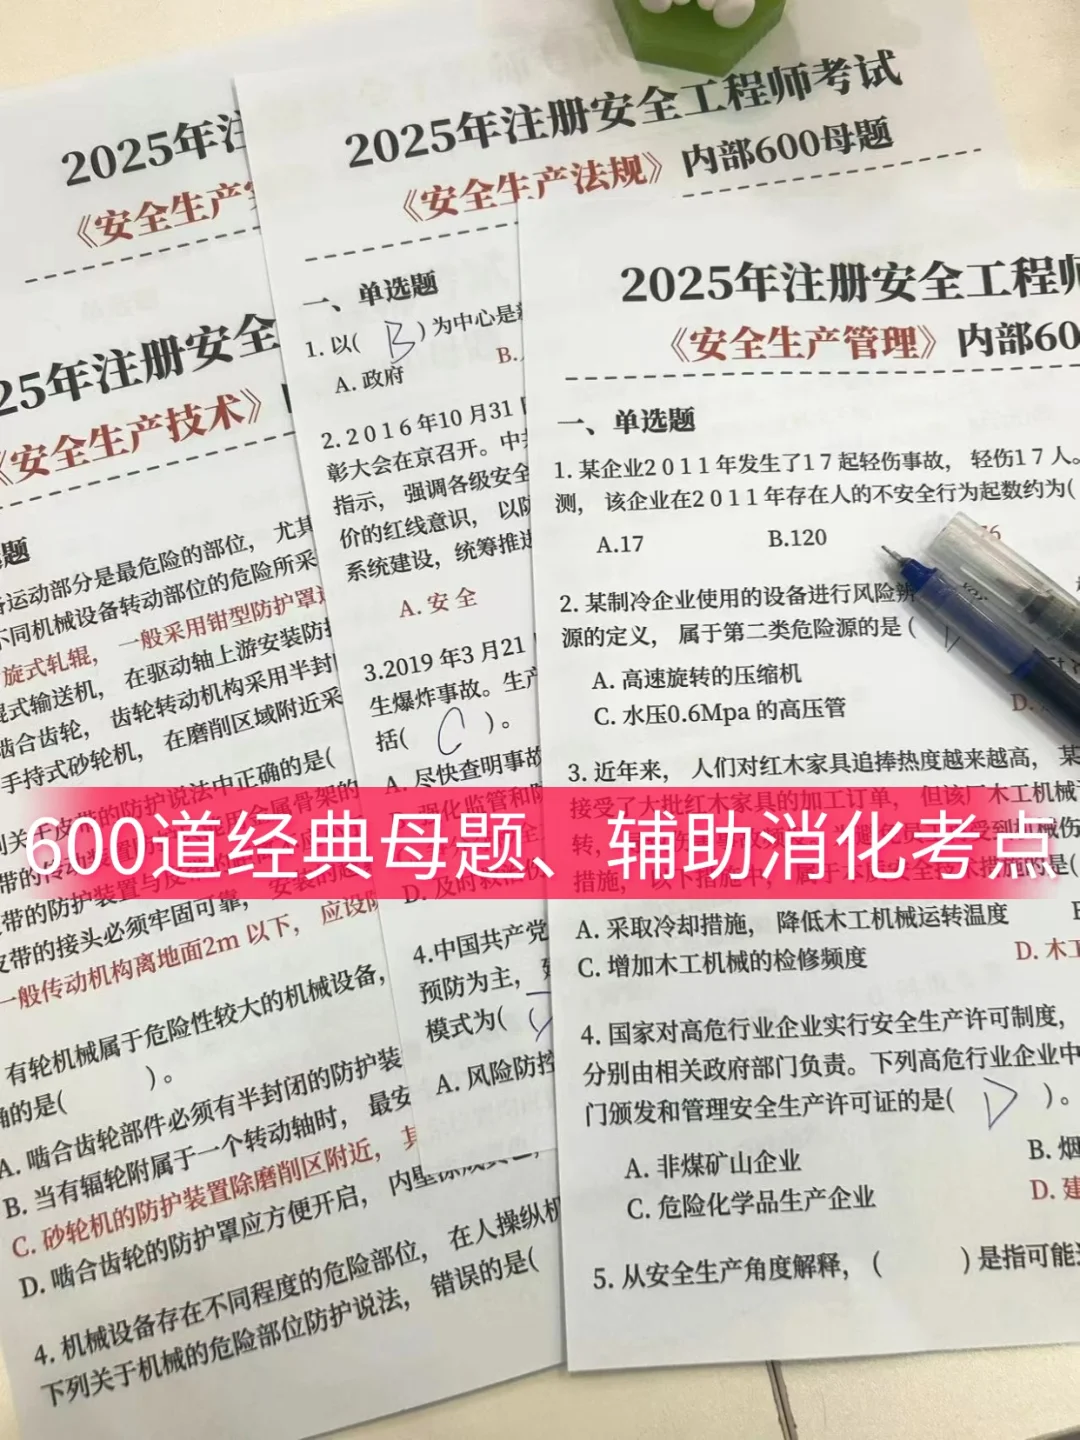 2025年注
《安全生产
25年注册安全
《安全生产技术》
题
备运动部分是最危险的部位，尤其
不同机械设备转动部位的危险所采
旋式轧辊，一般采用钳型防护罩
辊式输送机，在驱动轴上游安装防护
啮合齿轮，齿轮转动机构采用半封
手持式砂轮机，在磨削区域附近采
列关于皮带的防护说法中正确的是(
皮带的接头必须牢固可靠，安装的
一般传动机构离地面2m 以下，应设防
有轮机械属于危险性较大的机械设备，
确的是( )。
A. 啮合齿轮部件必须有半封闭的防护装
B. 当有辐轮附属于一个转动轴时，最安
C. 砂轮机的防护装置除磨削区附近，其
D. 啮合齿轮的防护罩应方便开启，内壁涂成
4. 机械设备存在不同程度的危险部位，在人操纵机
下列关于机械的危险部位防护说法，错误的是(
2025年注册安全工程师考试
《安全生产法规》内部600母题
一、单选题
1. 以( B )为中心是
A. 政府
B.
2. 2016年10月31日
彰大会在京召开。中共
指示，强调各级安全
价的红线意识，以防
系统建设，统筹推进
A. 安全
3.2019年3月21日
生爆炸事故。生产
括( C )。
A. 尽快查明事故
强化监管和防
D. 及时救治
4.中国共产党
预防为主，
模式为(
A. 风险防控
2025年注册安全工程师
《安全生产管理》内部60
一、单选题
1. 某企业2011年发生了17起轻伤事故，轻伤17人。
测，该企业在2011年存在人的不安全行为起数约为(
A.17
B.120
2. 某制冷企业使用的设备进行风险辨
源的定义，属于第二类危险源的是(
A. 高速旋转的压缩机
C. 水压0.6Mpa 的高压管
D.
3. 近年来，人们对红木家具追捧热度越来越高，某
接受了大批红木家具的加工订单，但该厂木工机械
600道经典母题、辅助消化考点
措施，以下措施中，属于本质安全技术措施的是(
A. 采取冷却措施，降低木工机械运转温度
C. 增加木工机械的检修频度
D. 木工
4. 国家对高危行业企业实行安全生产许可制度，
分别由相关政府部门负责。下列高危行业企业中
门颁发和管理安全生产许可证的是( D )。
A. 非煤矿山企业
B. 烟
C. 危险化学品生产企业
D. 建
5. 从安全生产角度解释，( )是指可能